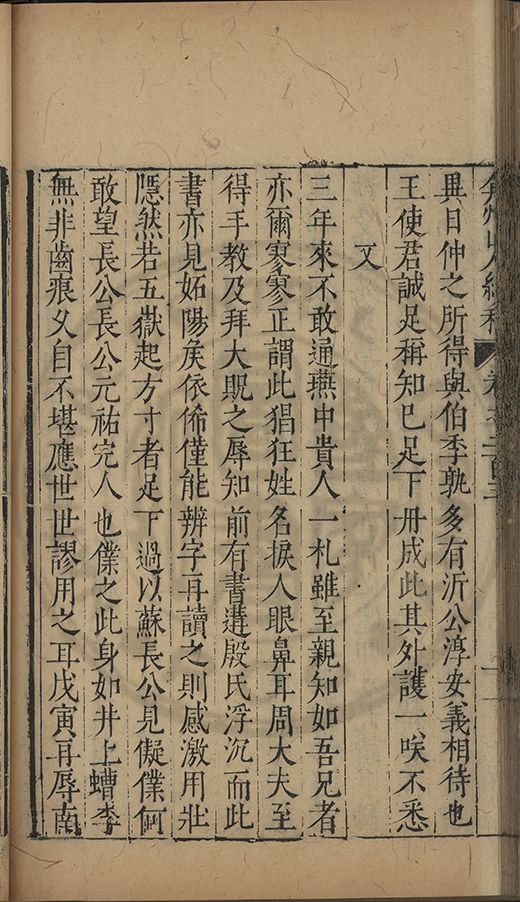 弇州山人續稿 卷之二百三
異日仲之所得與伯季孰多有沂公淳安義相待也
王使君誠足稱知已足下冊成此其外護一咲不悉
又
三年來不敢通燕中貴人一札雖至親知如吾兄者
亦爾寥寥正謂此猖狂姓名捩人眼鼻耳周大夫至
得手教及拜大貺之辱知前有書遣殷氏浮沉而此
書亦見妬陽矦依俙僅能辨字再讀之則感激用壯
隱然若五嶽起方寸者足下過以蘇長公見儗僕何
敢望長公長公元祐完人也僕之此身如井上螬李
無非齒痕乂自不堪應世世謬用之耳戊寅再辱南